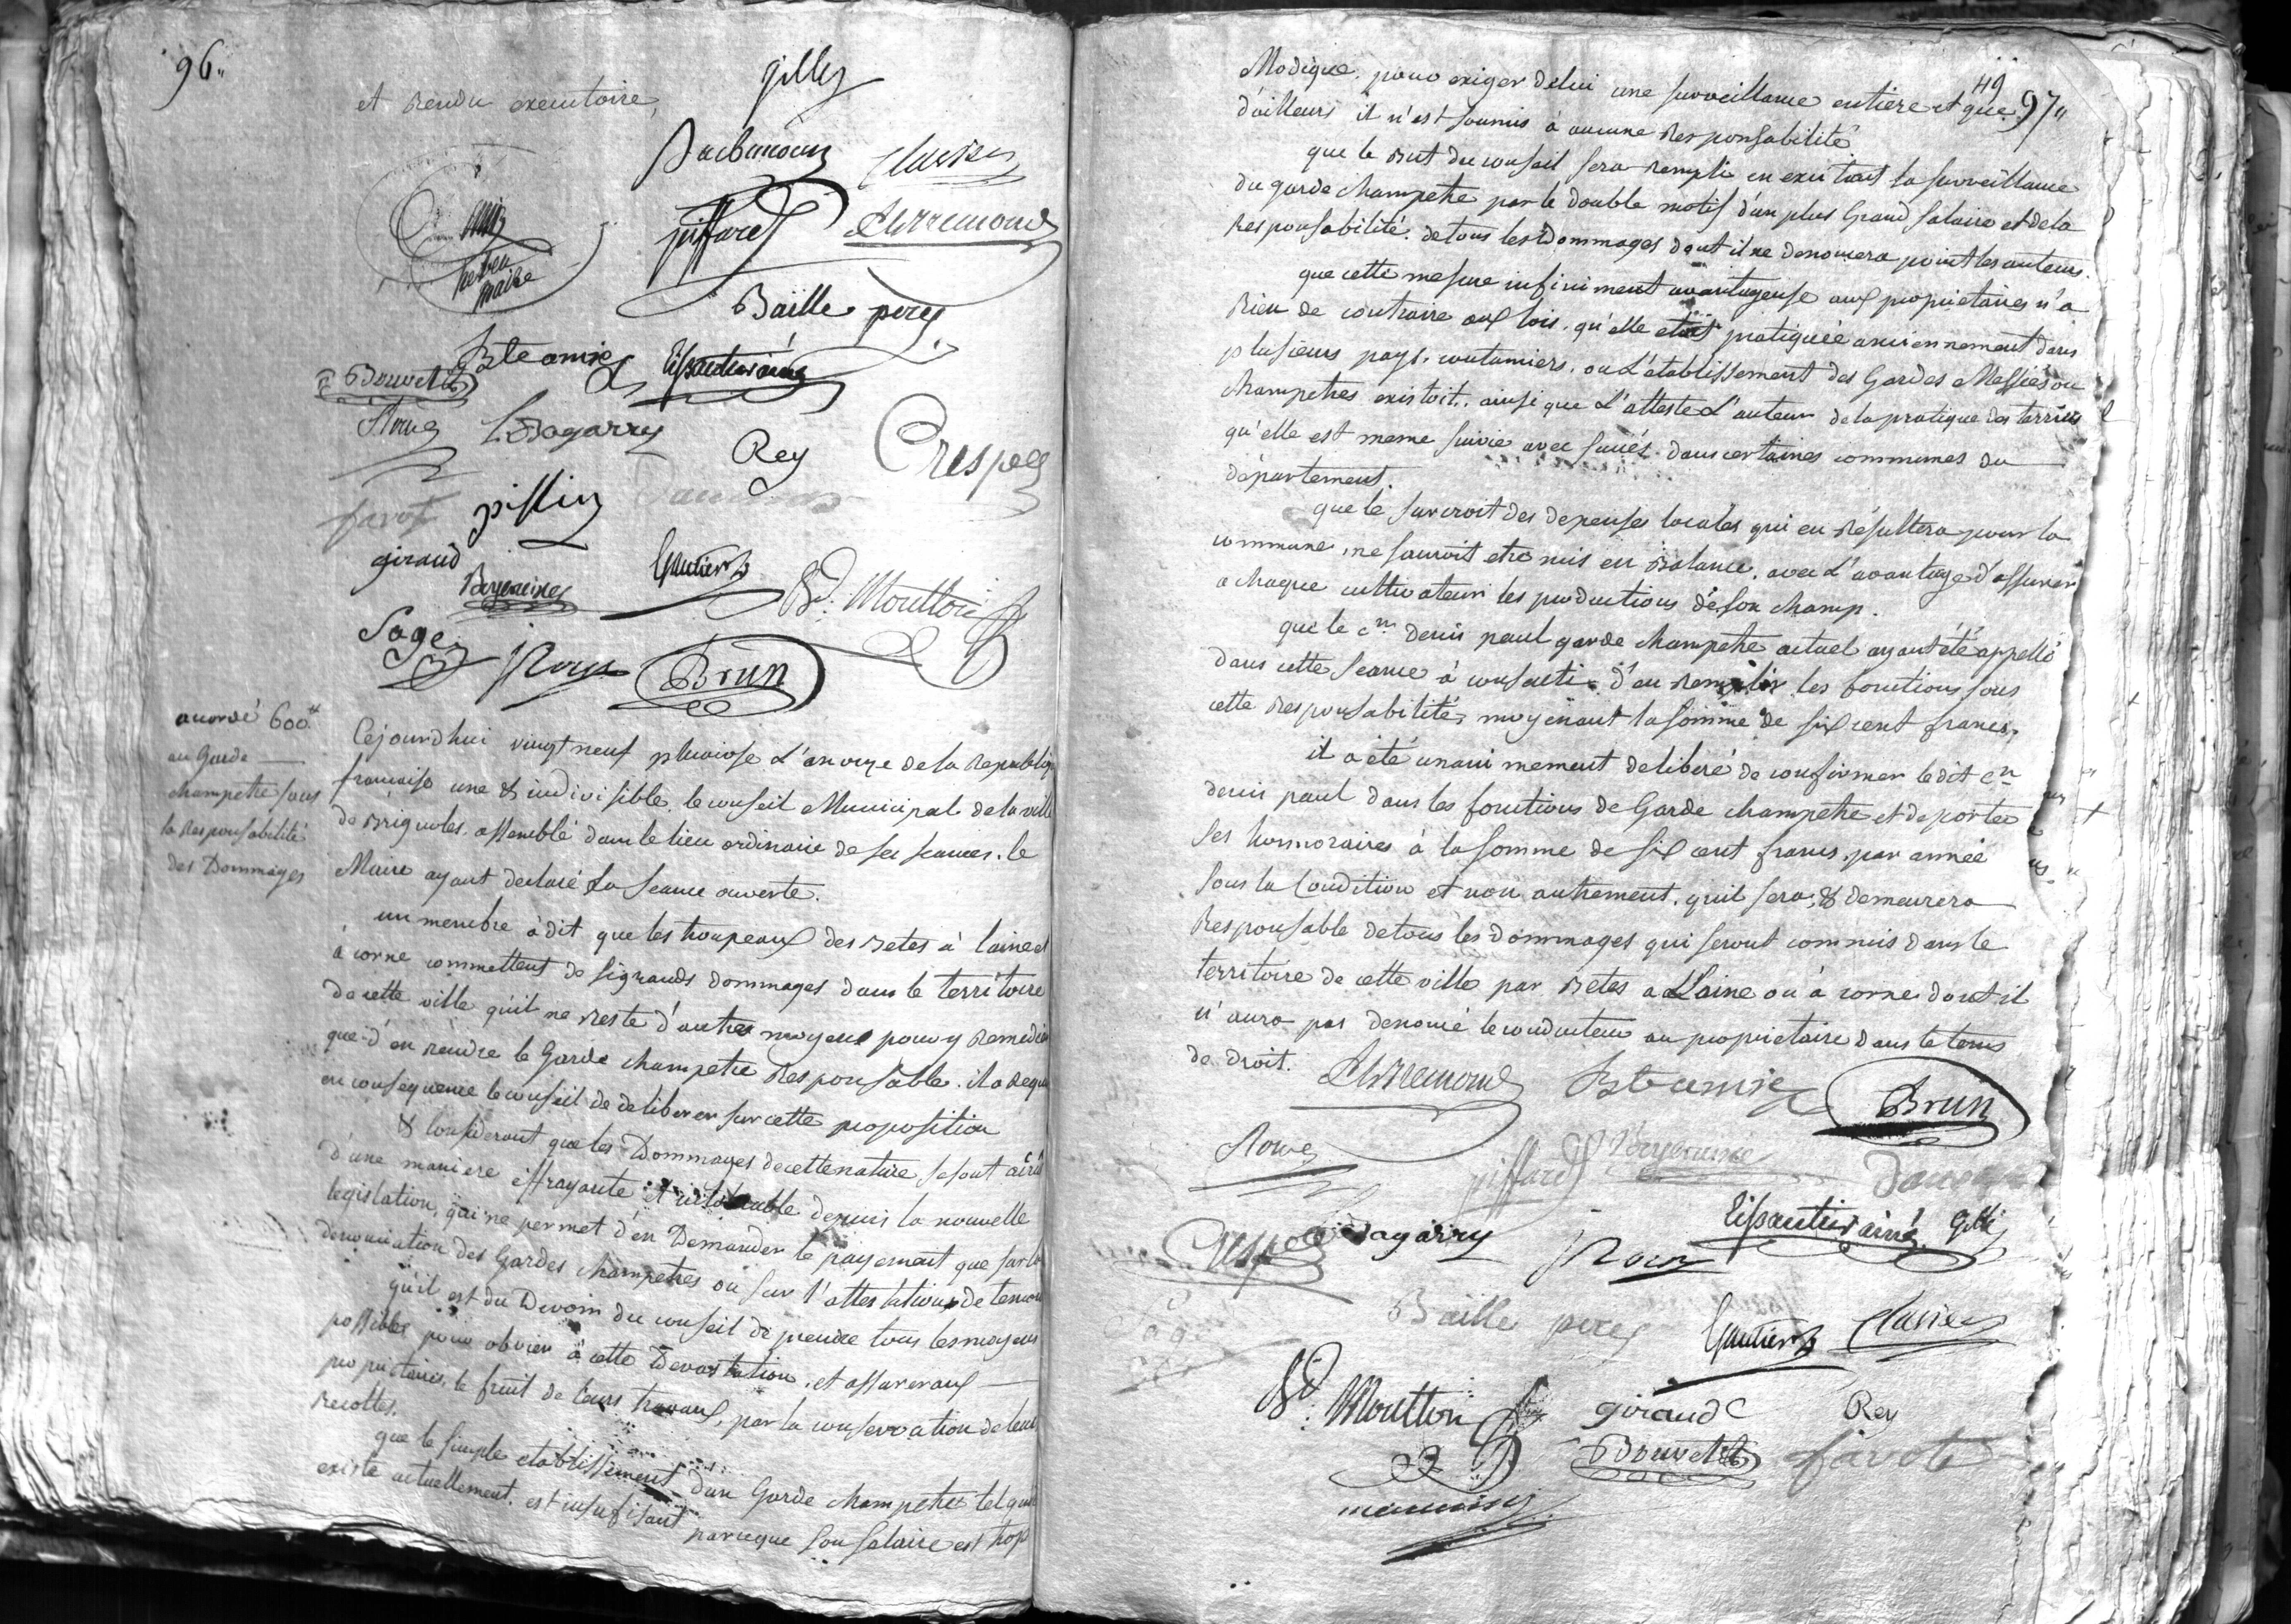 96"
et rendu executoire,
gilly
Barbaroux
Clavier
piffard
Clerremond
vu
prefet
maire
Baille pere
Bte amic
Lipautier ainé
Bouvet
Roux
L Dagarry
Rey
Crespel
favot
pissin
giraud
Gautier
Bd. Moutton
Sage
j Roux
Brun
accordé 600 tt
au Garde
champetre sous
la Responsabilité
des Dommages
Cejourdhui vingt neuf pluviose L'an onze de la Republiq
francaise une & indivisible. le conseil Municipal de la ville
de Brignoles, assemblé dans le lieu ordinaire de ses seances. le
Maire ayant declaré La Seance ouverte.
un membre à dit que les troupeaux des Betes à laine et
à corne commettent de si grands dommages dans le territoire
de cette ville qu'il ne reste d'autres moyens pour y Remedier
que d'en rendre le Garde champetre Responsable. il a requis
en consequence le conseil de deliberer sur cette proposition
& Considerant que les Dommages de cette nature se sont accrus
d'une maniere effrayante et intolerable depuis la nouvelle
legislation, qui ne permet d'en Demander le payement que sur la
denonciation des Gardes champetres ou sur l'attestation de temoins
qu'il est du Devoir du conseil de prendre tous les moyens
possibles pour obvier à cette Devastation, et assurer aux
proprietaires, le fruit de leurs travaux, par la conservation de leurs
recoltes.
que le simple etablissement d'un Garde champetre tel que
existe actuellement. est insufisant parceque son salaire est trop
49
97"
Modique. pour exiger de lui une surveillance entiere et que
d'ailleurs il n'est soumis à aucune Responsabilité
que le But du conseil sera rempli en excitant la surveillance
du garde champetre par le double motif d'un plus Grand salaire et de la
Responsabilité. de tous les Dommages dont il ne denoncera point les auteurs.
que cette mesure infiniment avantageuse aux proprietaires n'a
Rien de contraire aux lois. qu'elle etoit pratiquée anciennement dans
plusieurs pays. coutumiers. ou L'etablissement des Gardes Messiers ou
champetres existoit. ainsi que L'atteste L'auteur de la pratique des terriers
qu'elle est meme suivie avec succés dans certaines communes du
departement.
que le surcroit des depenses locales qui en Résultera pour la
commune, ne sauroit etre mis en Balance, avec L'avantage d'assurer
a chaque cultivateur les productions de son champ.
que le cn. denis paul garde champetre actuel ayant été appellé
dans cette seance à consenti d'en remplir les fonctions sous
cette Responsabilité, moyenant la somme de six cent francs,
il a été unanimement deliberé de confirmer ledit cn
denis paul dans les fonctions de Garde champetre et de porter
ses honnoraires à la somme de six cent francs, par année
sous la Condition et non autrement, quil sera, & demeurera
Responsable de tous les dommages qui seront commis dans le
territoire de cette ville par Betes a Laine ou à corne dont il
n'aura pas denoncé le conducteur ou proprietaire dans le tems
de droit.
Clerremond
Bte amic
Brun
Roux
piffard
Crespel
L Dagarry
j Roux
Lipautier ainé
Gilly
Sage
Baille pere
Gautier
Clavier
Bd. Moutton
giraud
Rey
Bouvet
favot